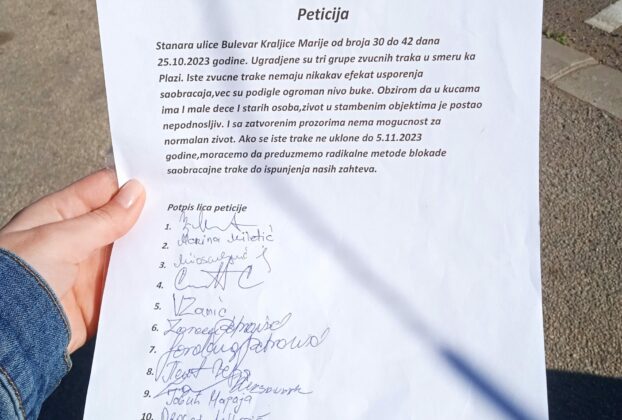 Peticija
Stanara ulice Bulevar Kraljice Marije od broja 30 do 42 dana
25.10.2023 godine. Ugradjene su tri grupe zvucnih traka u smeru ka
Plazi. Iste zvucne trake nemaju nikakav efekat usporenja
saobracaja,vec su podigle ogroman nivo buke. Obzirom da u kucama
ima I male dece I starih osoba,zivot u stambenim objektima je postao
nepodnosljiv. I sa zatvorenim prozorima nema mogucnost za
normalan zivot. Ako se iste trake ne uklone do 5.11.2023
godine,moracemo da preduzmemo radikalne metode blokade
saobracajne trake do ispunjenja nasih zahteva.
Potpis lica peticije
1.
2. Marina
3.
4.
5. VZanić
6.
7.
8.
9. Марија
10.